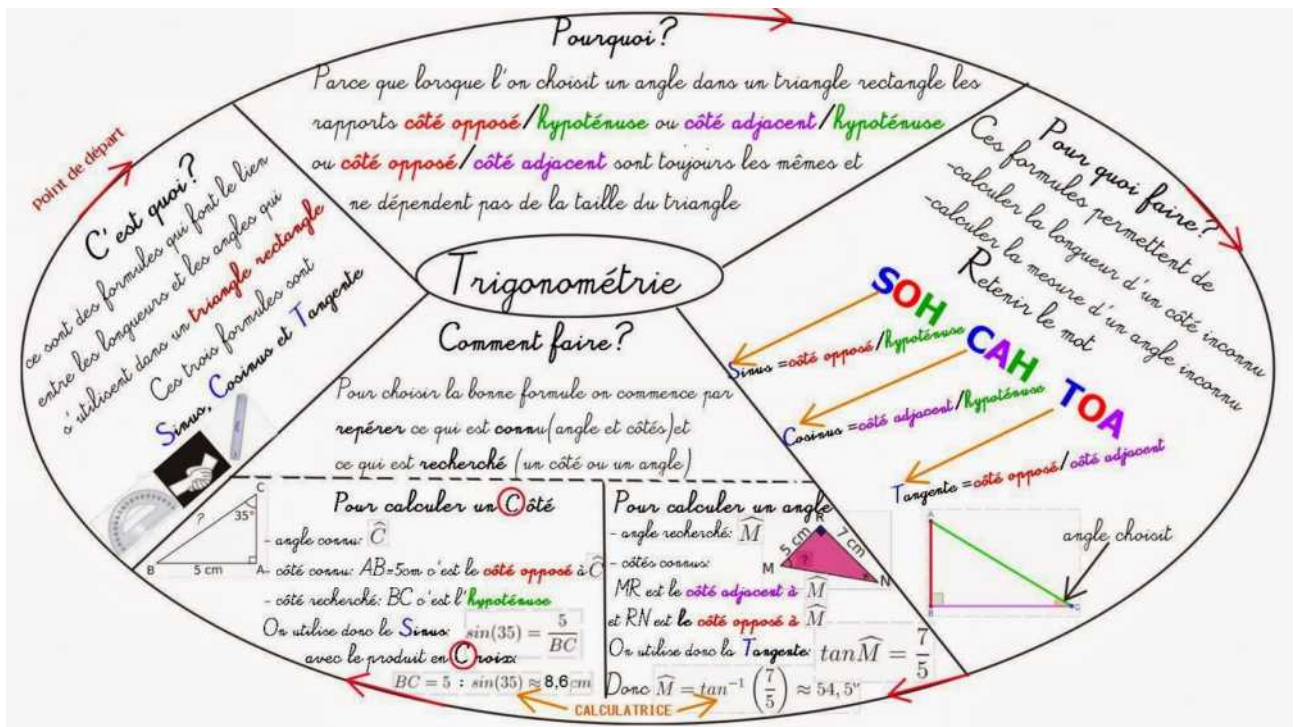 Point de départ
C'est quoi?
ce sont des formules qui font le lien
entre les longueurs et les angles qui
s'utilisent dans un triangle rectangle
Ces trois formules sont
Sinus, Cosinus et Tangente
Pourquoi?
Parce que lorsque l'on choisit un angle dans un triangle rectangle les
rapports côté opposé/hypoténuse ou côté adjacent/hypoténuse
ou côté opposé/côté adjacent sont toujours les mêmes et
ne dépendent pas de la taille du triangle
Pour quoi faire?
Ces formules permettent de
-calculer la longueur d'un côté inconnu
-calculer la mesure d'un angle inconnu
Retenir le mot
SOH
CAH
TOA
Sinus =côté opposé/hypoténuse
Cosinus =côté adjacent/hypoténuse
Tangente =côté opposé/côté adjacent
A
B
C
angle choisit
Trigonométrie
Comment faire?
Pour choisir la bonne formule on commence par
repérer ce qui est connu(angle et côtés)et
ce qui est recherché (un côté ou un angle)
Pour calculer un Côté
C
35°
?
B
5 cm
A
- angle connu: Ĉ
- côté connu: AB=5cm c'est le côté opposé à Ĉ
- côté recherché: BC c'est l'hypoténuse
On utilise donc le Sinus: sin(35) = 5/BC
avec le produit en Croix:
BC = 5 : sin(35) ≈ 8,6 cm
Pour calculer un angle
- angle recherché: M̂
- côtés connus:
MR est le côté adjacent à M̂
et RN est le côté opposé à M̂
On utilise donc la Tangente: tan M̂ = 7/5
Donc M̂ = tan⁻¹ (7/5) ≈ 54,5°
R
5 cm
7 cm
M
?
N
CALCULATRICE